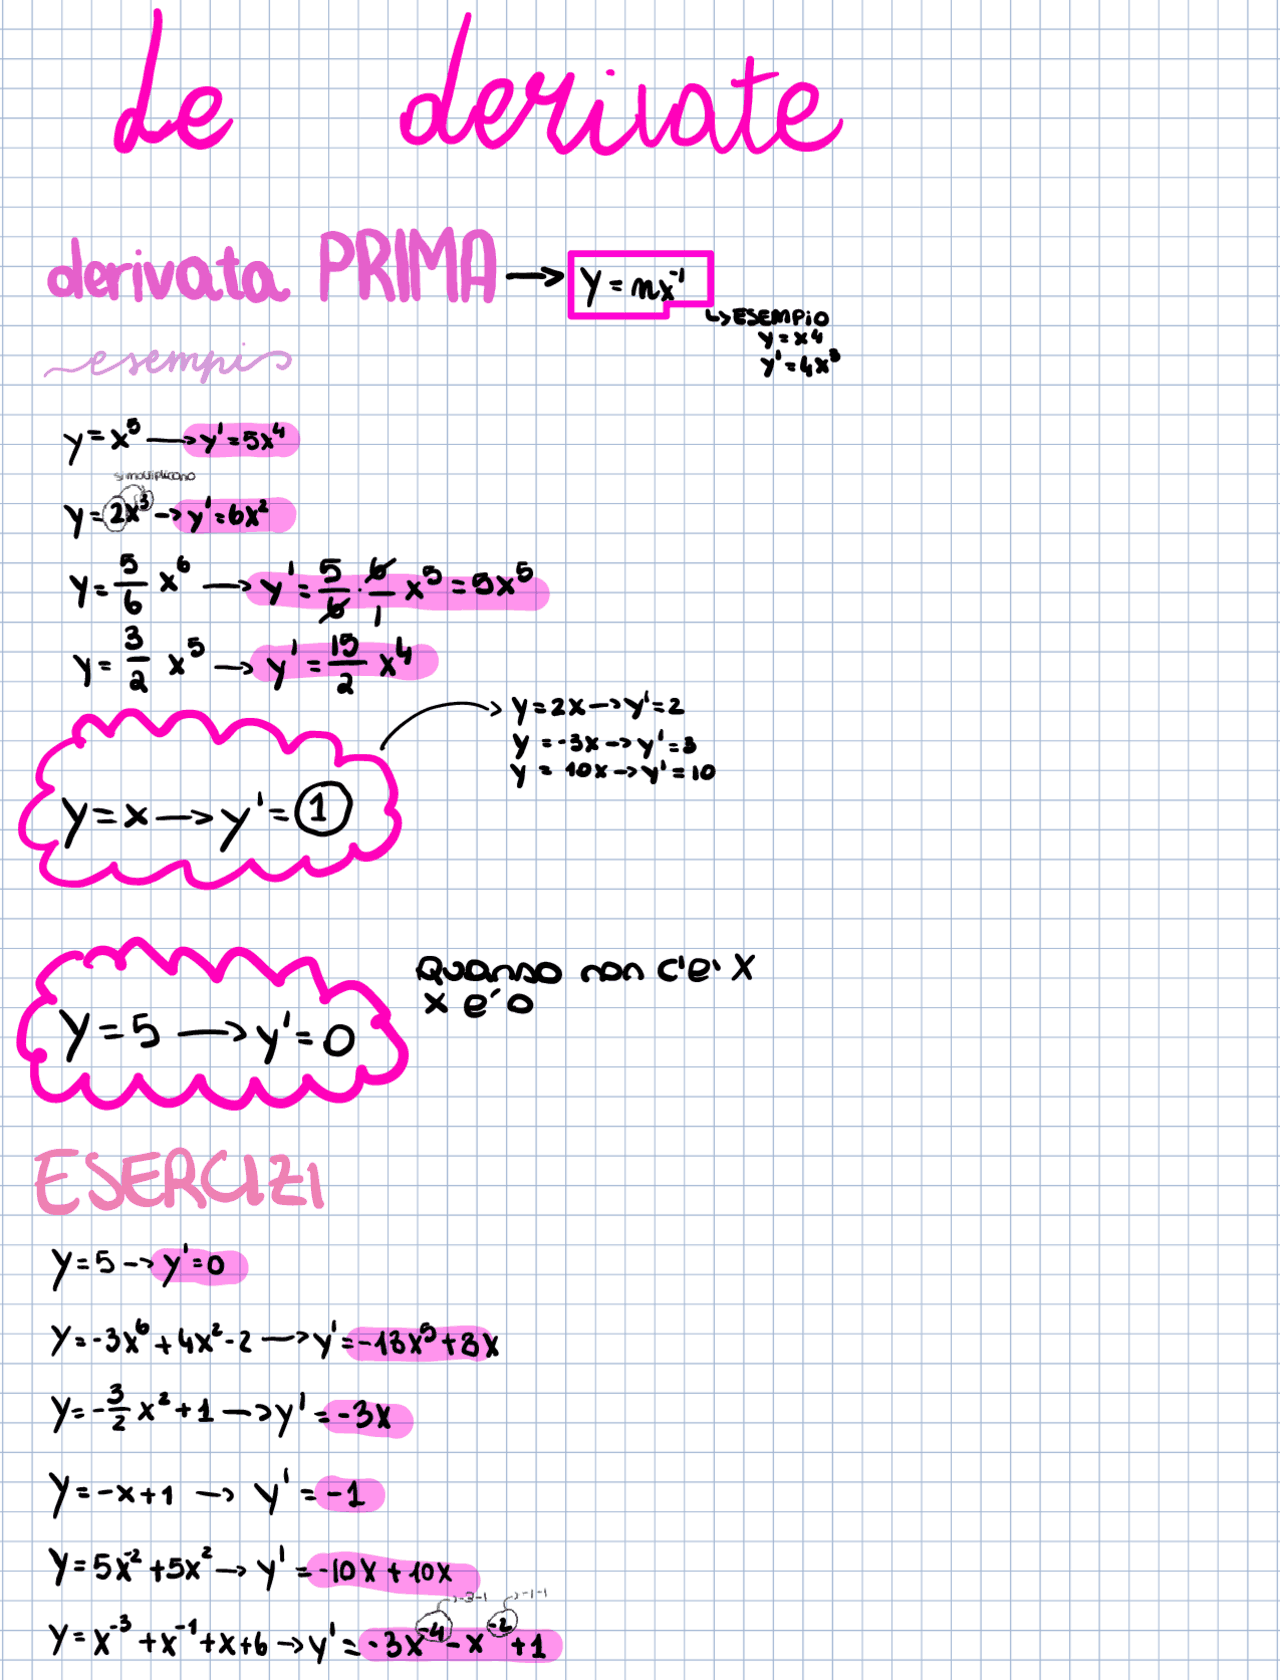 Le derivate
derivata PRIMA → y = nx⁻¹
↳ ESEMPIO
y = x⁴
y' = 4x³
esempi
y = x⁵ → y' = 5x⁴
si moltiplicano
y = 2x³ → y' = 6x²
y = 5/6 x⁶ → y' = 5/6 · 6/1 x⁵ = 5x⁵
y = 3/2 x⁵ → y' = 15/2 x⁴
y = 2x → y' = 2
y = -3x → y' = 3
y = 10x → y' = 10
y = x → y' = 1
Quando non c'e' X
x e' 0
y = 5 → y' = 0
ESERCIZI
y = 5 → y' = 0
y = -3x⁶ + 4x² - 2 → y' = -18x⁵ + 8x
y = -3/2 x² + 1 → y' = -3x
y = -x + 1 → y' = -1
y = 5x⁻² + 5x² → y' = -10x + 10x
→ -3-1 → -1-1
y = x⁻³ + x⁻¹ + x + 6 → y' = -3x⁻⁴ - x⁻² + 1